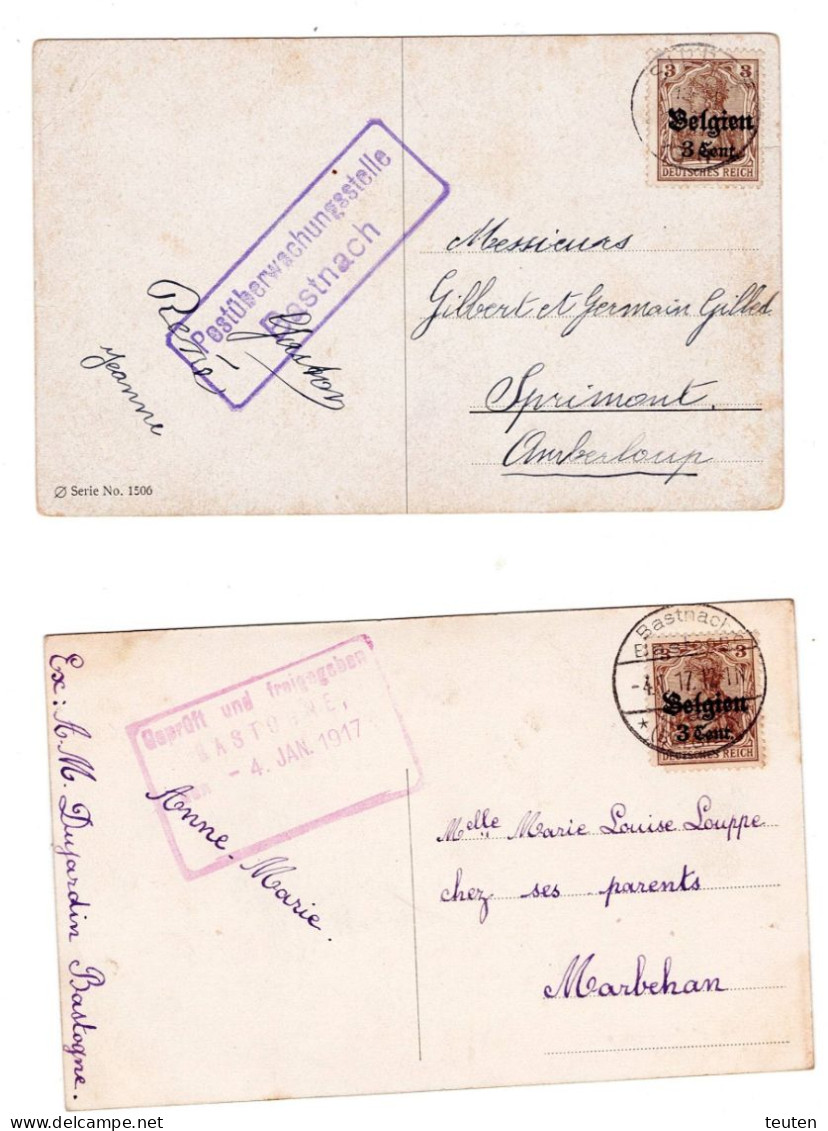 3 3
Belgien
3 Cent.
DEUTSCHES REICH
Postüberwachungsstelle
Bastnach
Messieurs
Gilbert et Germain Gillet
Sprimont.
Amberloup
René
Gaston
Jeanne
Serie No. 1506
Bastnach
3 3
-4. 17.
Belgien
3 Cent.
DEUTSCHES REICH
Geprüft und freigegeben
BASTOGNE,
- 4. JAN. 1917
Anne-Marie.
Ex: A. M. Dujardin Bastogne.
Melle Marie Louise Louppe
chez ses parents
Marbehan
teuten